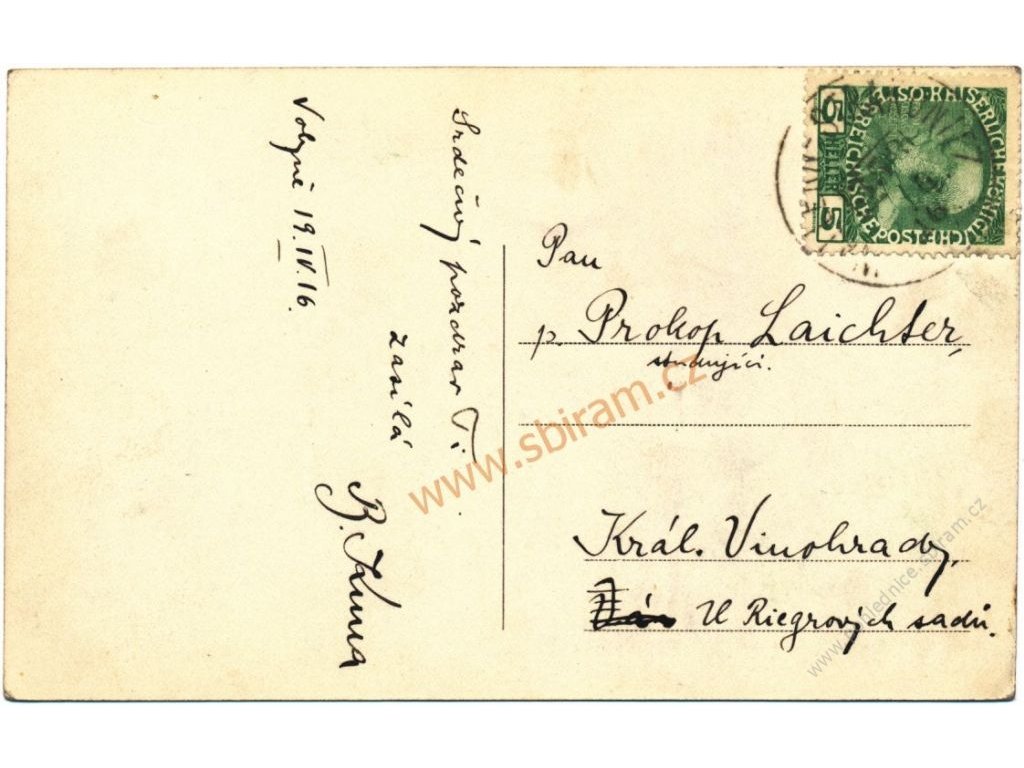 Volyně 19.IV.16.
Srdečný pozdrav Ti
zasílá
Pan
p. Prokop Laichter,
studující.
Král. Vinohrady,
U Riegrových sadů.
5 HELLER 5
KAISERLICHE KÖNIGLICHE
ÖSTERREICHISCHE POST
www.sbiram.cz
www.pohlednice.sbiram.cz